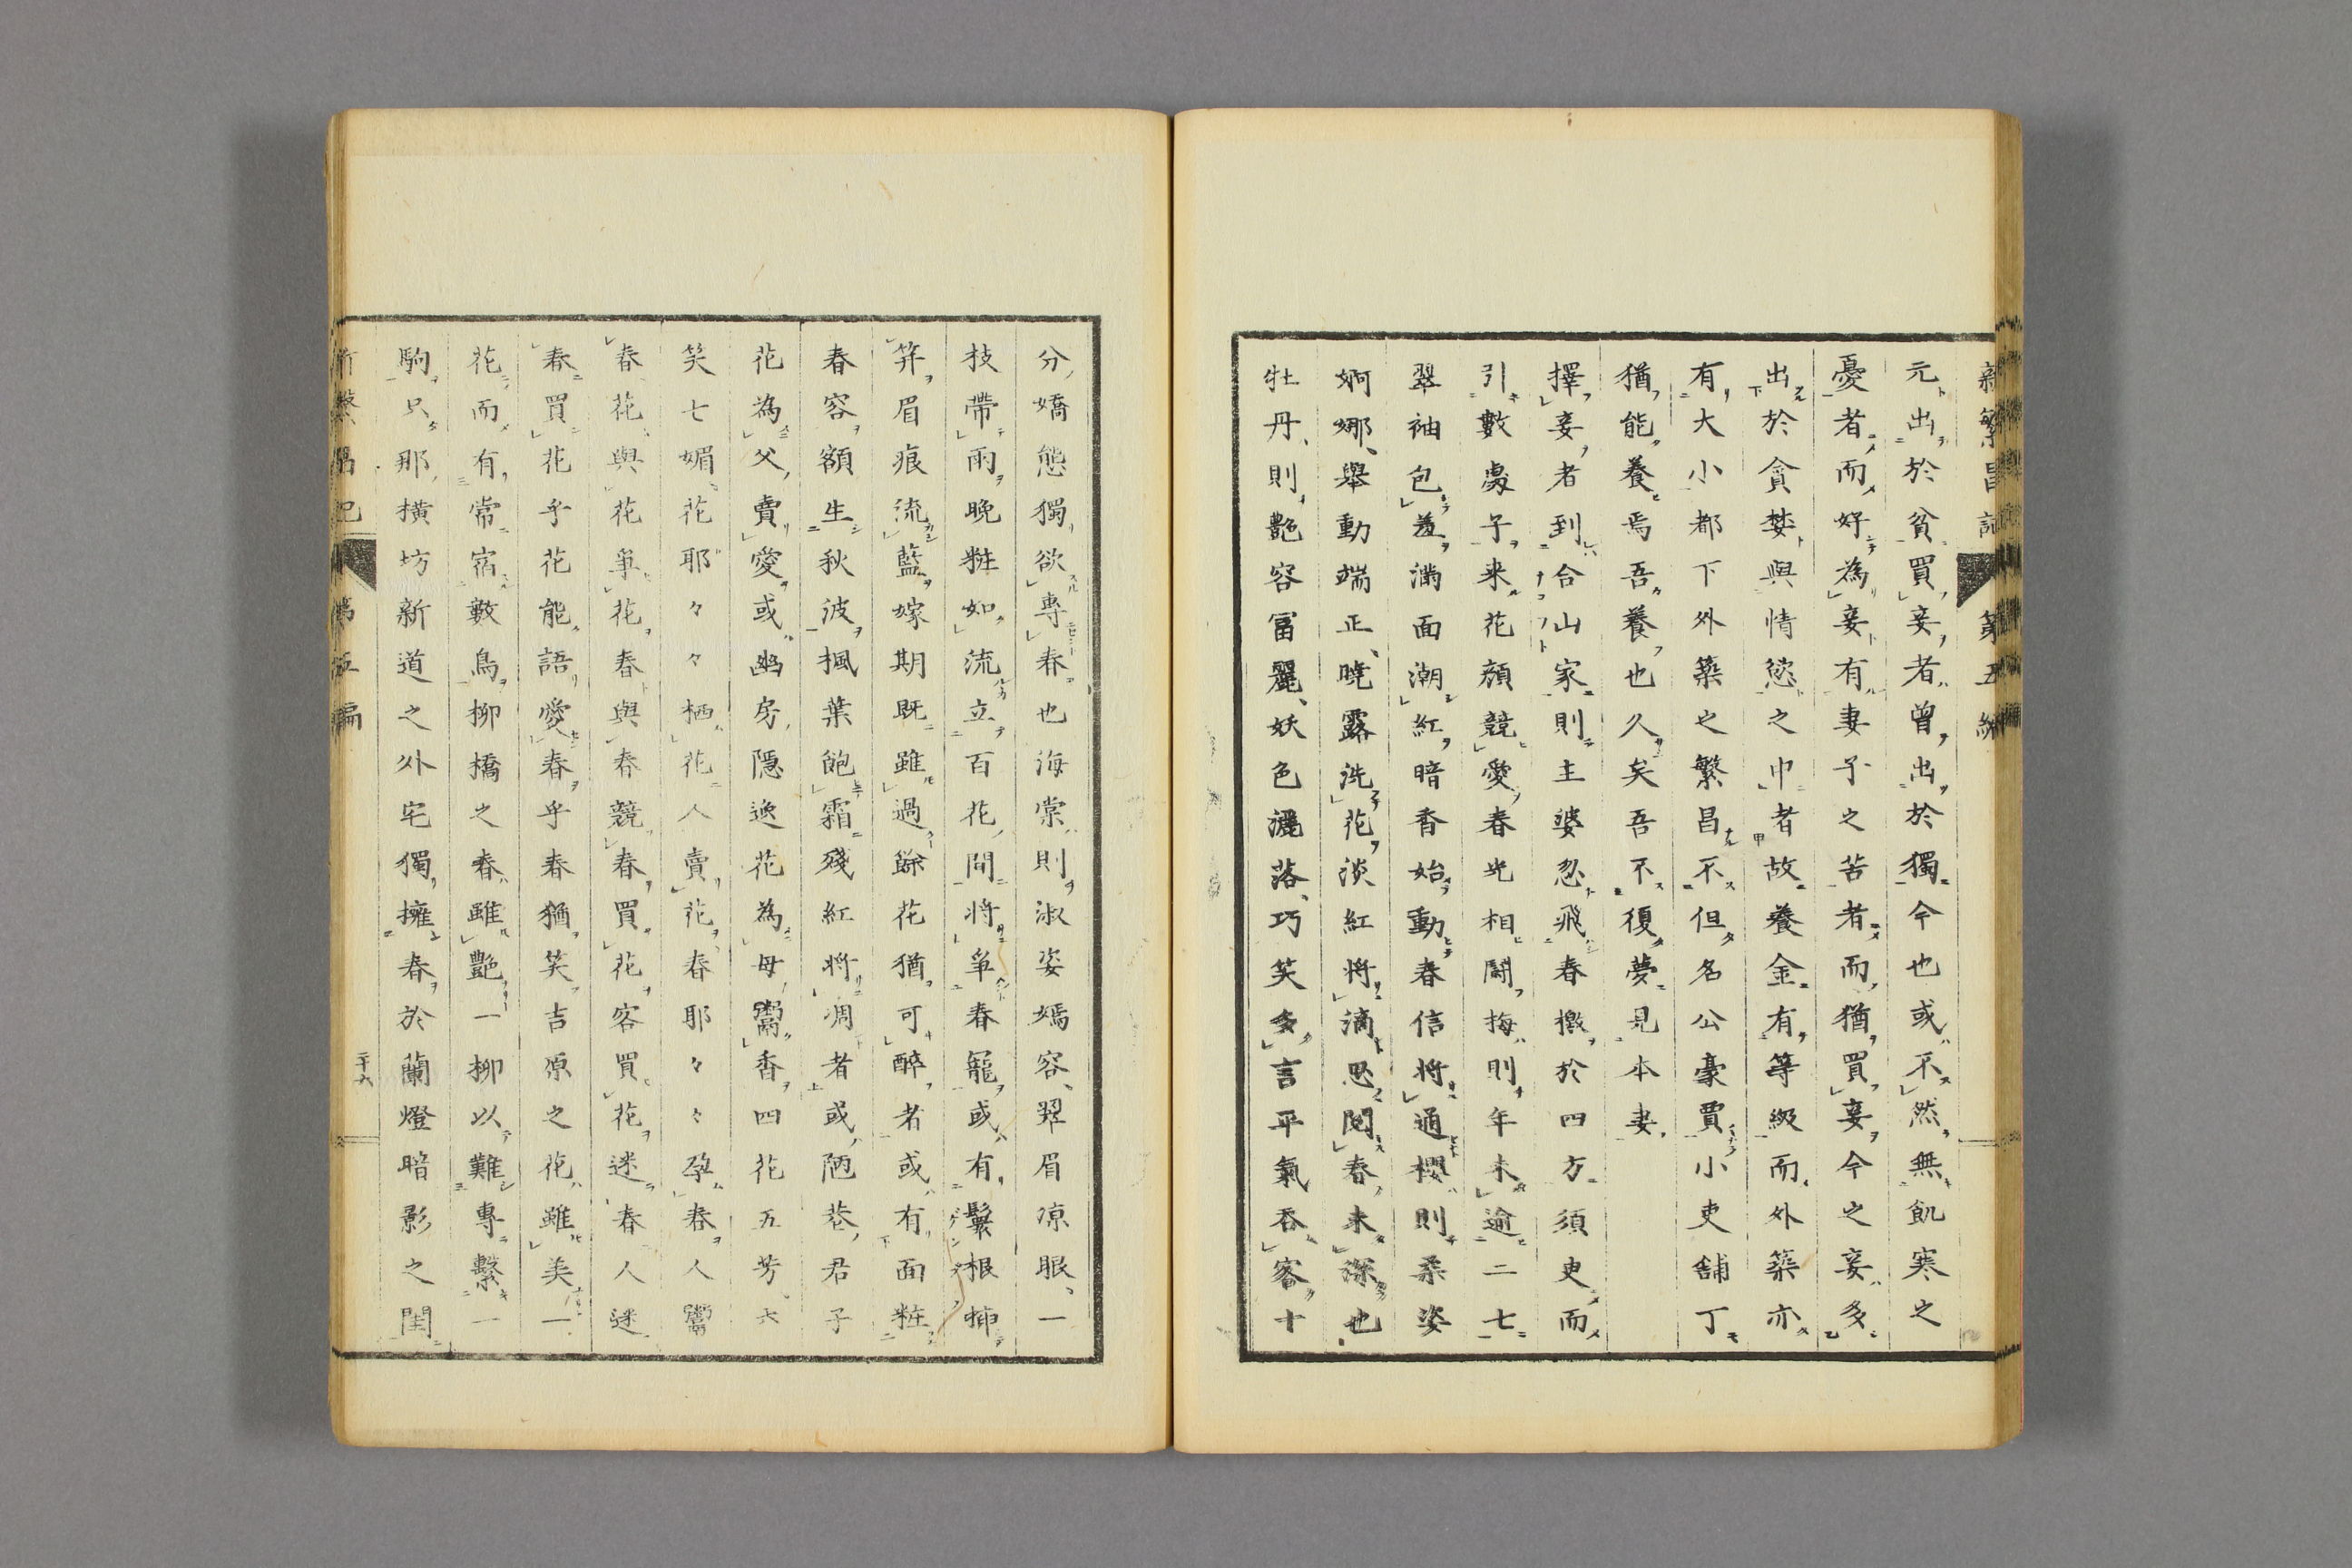 新繁昌記 第五編
元出於貧買妾者曾出於獨今也或不然無飢寒之
憂者而好為妾有妻子之苦者而猶買妾今之妾多
出於貪婪與情慾之中者故養金有等級而外築亦
有大小都下外築之繁昌不但名公豪賈小吏舗丁
猶能養焉吾養也久矣吾不復夢見本妻
擇妾者到合山家則主婆忽飛春檄於四方須臾而
引數處子来花顔競愛春光相鬪梅則年未逾二七
翠袖包羞滿面潮紅暗香始動春信將通櫻則柔姿
婀娜、舉動端正、曉露洗花淡紅將滴思閨春未深也
牡丹、則艶容冨麗、妖色灑落、巧笑多言平氣呑客十
分嬌態獨欲專春也海棠則淑姿嫣容、翠眉凉眼、一
枝帶雨晩粧如流立百花間將爭春寵或有鬢根挿
笄眉痕流藍嫁期既雖過餘花猶可醉者或有面粧
春容額生秋波楓葉飽霜殘紅將凋者或陋巷君子
花為父賣愛或幽房隠逸花為母鬻香四花五芳六
笑七媚花耶々々栖花人賣花春耶々々孕春人鬻
春花與花爭花春與春競春買花客買花迷春人迷
春買花乎花能語愛春乎春猶笑吉原之花雖美一
花而有常宿數鳥柳橋之春雖艶一柳以難專繫一
駒只那横坊新道之外宅獨擁春於蘭燈暗影之閨
新繁昌記 第五編 二十六